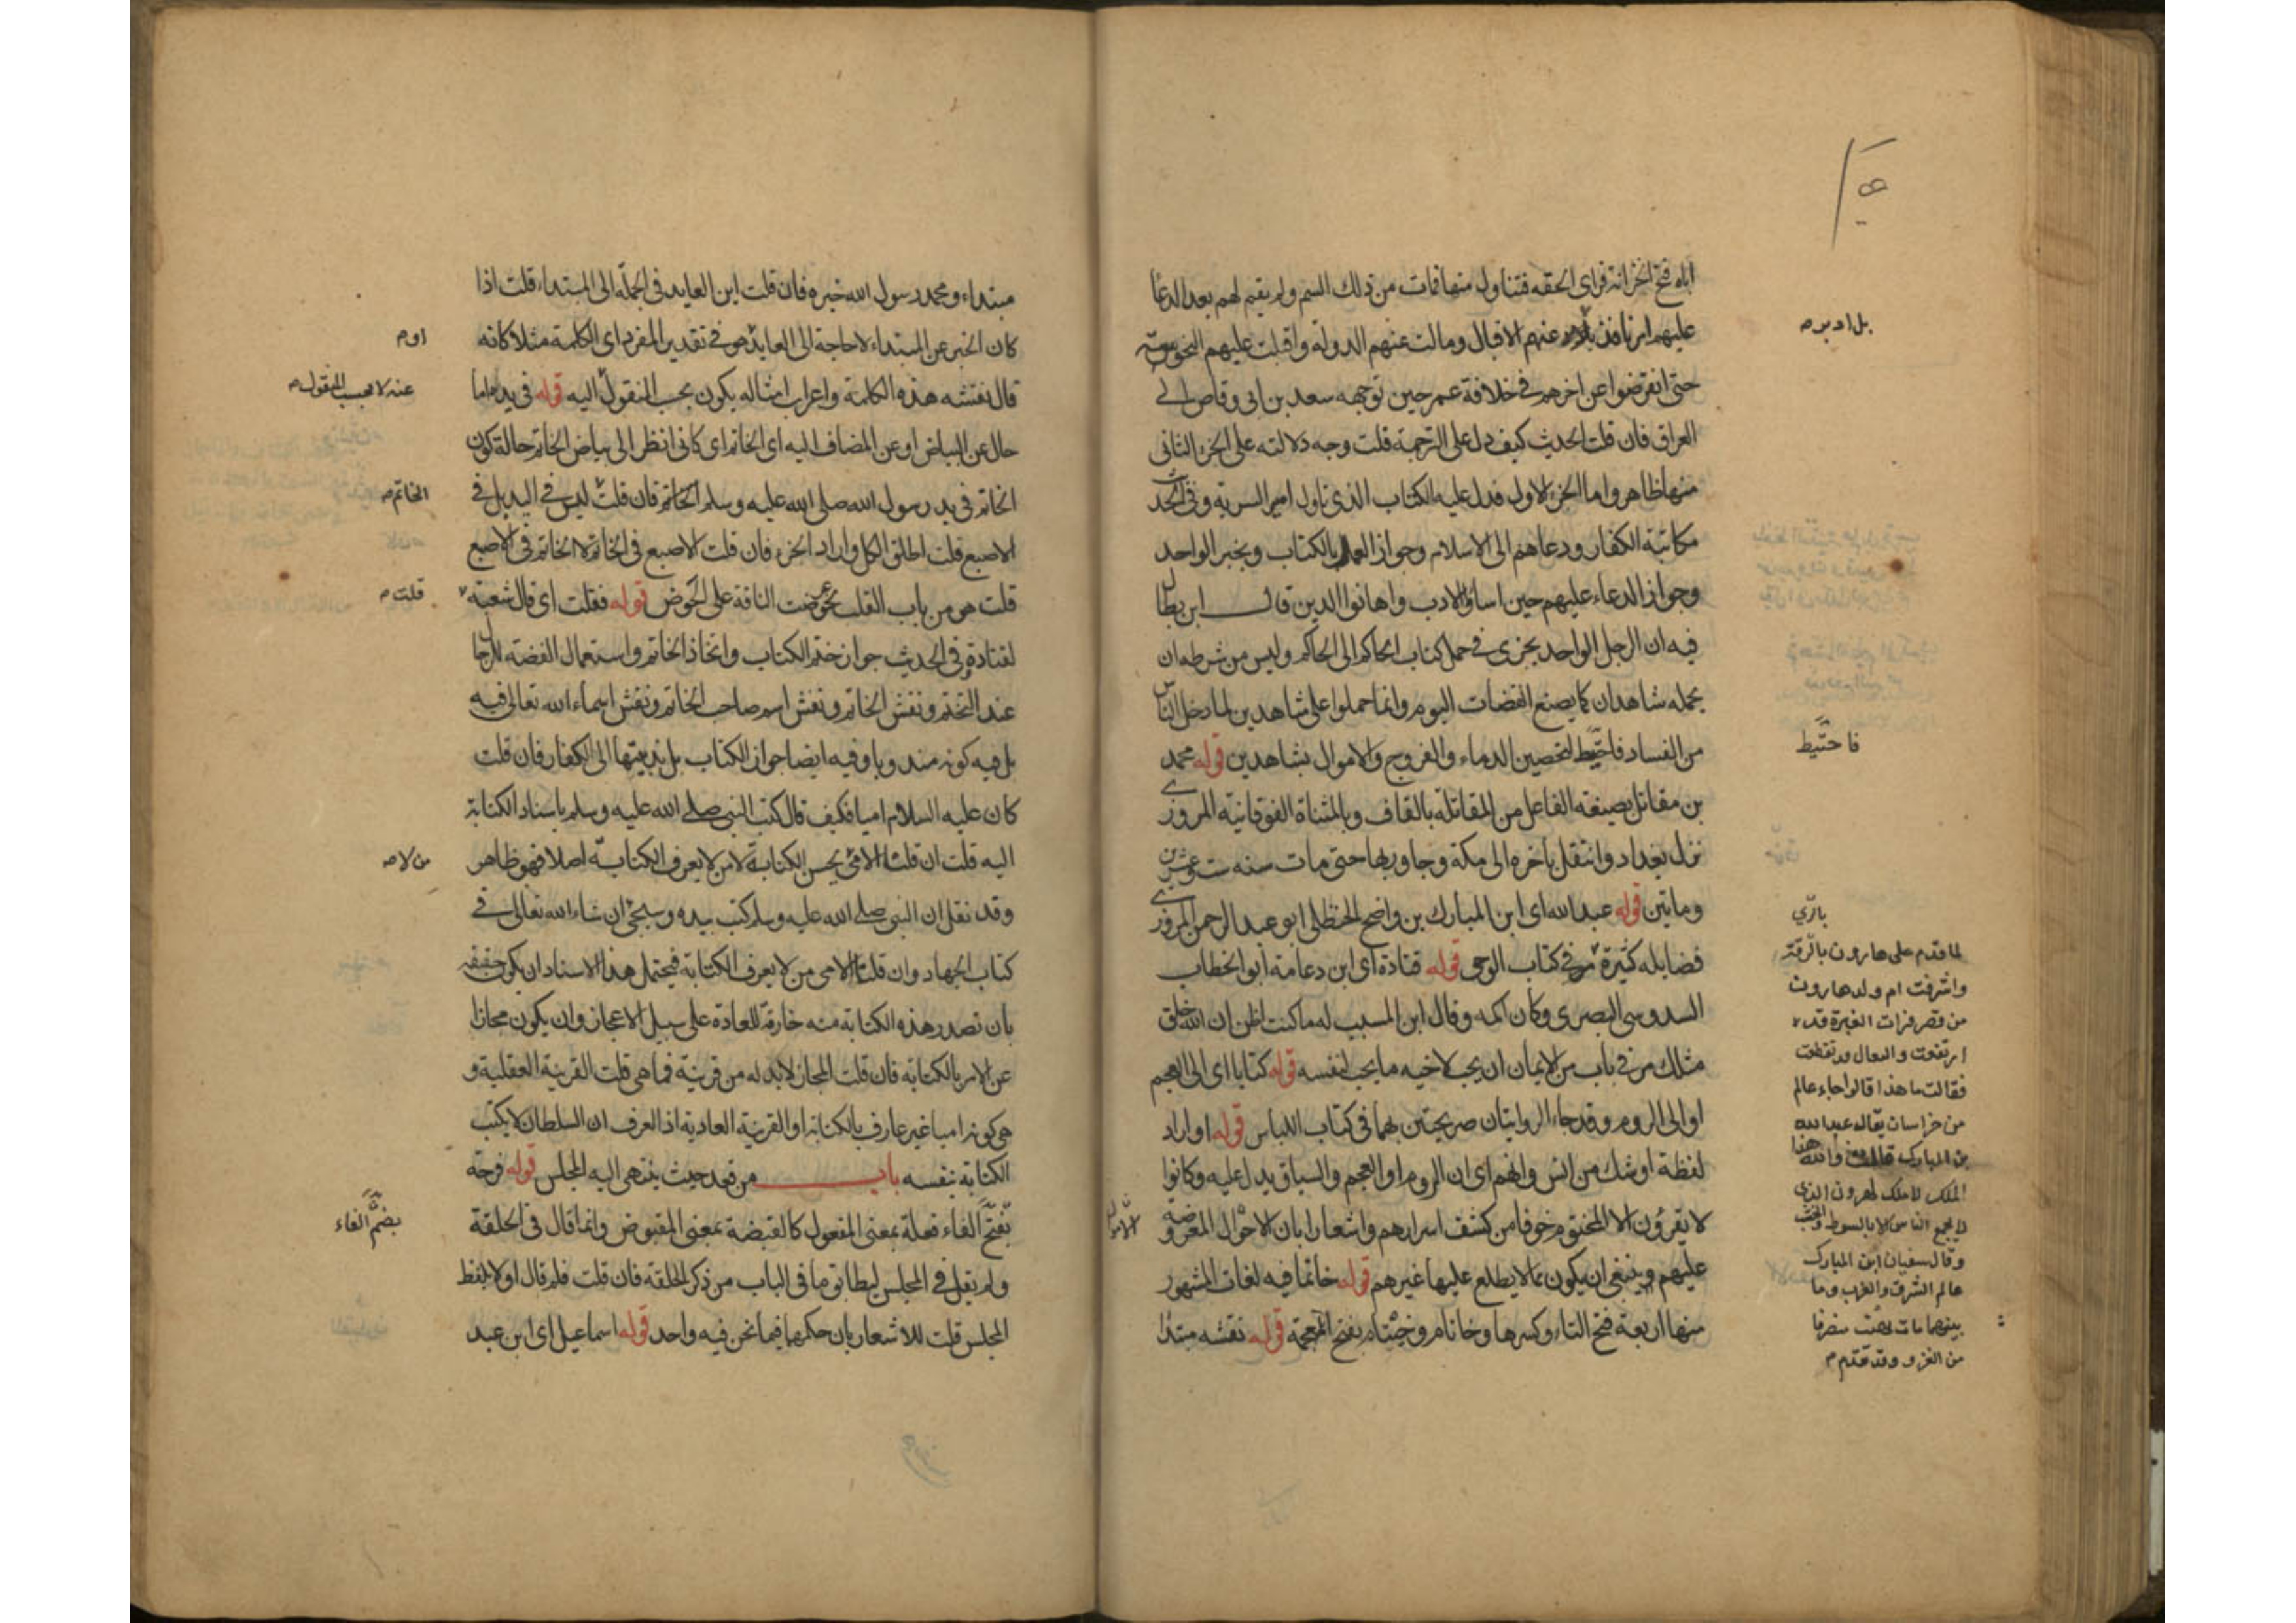 اباه فتح الخزانة فراى الحقه فتناول منها فمات من ذلك السم ولم يقم لهم بعد الدعا
عليهم امر نافذ بل ادبر عنهم الاقبال ومالت عنهم الدولة واقبلت عليهم النحوسة
حتى انقرضوا عن اخرهم في خلافة عمر حين توجهه سعد بن ابى وقاص الى
العراق فان قلت الحديث كيف دل على الترجمة قلت وجه دلالته على الجزء الثانى
منها ظاهر واما الجزء الاول فدل عليه الكتاب الذى ناول امير السرية وفى الحديث
مكاتبة الكفار ودعاهم الى الاسلام وجواز العمل بالكتاب وبخبر الواحد
وجواز الدعاء عليهم حين اساؤا الادب واهانوا الدين قال ابن بطال
فيه ان الرجل الواحد يجزى في حمل كتاب الحاكم الى الحاكم وليس من شرطه ان
يحمله شاهدان كما يصنع القضات اليوم وانما حملوا على شاهدين لما دخل الناس
من الفساد فاحتيط لتحصين الدماء والفروج والاموال بشاهدين قوله محمد
بن مقاتل بصيغة الفاعل من المقاتلة بالقاف وبالمثناة الفوقانية المروزى
نزل بغداد وانتقل باخره الى مكة وجاور بها حتى مات سنه ست وعشرين
وماتين قوله عبد الله اى ابن المبارك بن واضح الحنظلى ابو عبد الرحمن المروزى
فضايله كثيرة مر في كتاب الوحى قوله قتادة اى ابن دعامة ابو الخطاب
السدوسى البصرى وكان اكمه وقال ابن المسيب له ما كنت اظن ان الله خلق
مثلك مر في باب من الايمان ان يحب لاخيه ما يحب لنفسه قوله كتابا اى الى العجم
او الى الروم وقد جاء الروايتان صريحتين بهما فى كتاب اللباس قوله او اراد
لفظة او شك من انس وانهم اى ان الروم او العجم والسياق يدل عليه وكانوا
لا يقرؤن الا المختوم خوفا من كشف اسرارهم واشعارا بان الاحوال المعروضة
عليهم وينبغى ان يكون مما لا يطلع عليها غيرهم قوله خاتما فيه لغات المشهور
منها اربعة فتح التاء وكسرها وخاتام وخيتام بفتح المعجمة قوله نقشه مبتدا
بل ادبر
فاحتيط
لما قدم على هارون بالرقة
واشرفت ام ولد هارون
من قصر فرات الغبرة قد
ارتفعت والنعال قد تقطعت
فقالت ما هذا قالوا جاء عالم
من خراسان يقال له عبد الله
بن المبارك قالت والله هذا
الملك لا ملك هرون الذى
لا يجمع الناس الا بالسوط والخشب
وقال سفيان ابن المبارك
عالم الشرق والغرب وما
بينهما مات بهيت منصرفا
من الغزو وقد تقدم
مبتداء ومحمد رسول الله خبره فان قلت اين العايد فى الجملة الى المبتداء قلت اذا
كان الخبر عين المبتداء لا حاجة الى العايد هو في تقدير المفرد اى الكلمة مثلا كانه
قال نقشه هذه الكلمة واعراب امثاله يكون بحسب المنقول اليه قوله فى يده اما
حال عن البياض او عن المضاف اليه اى الخاتم اى كانى انظر الى بياض الخاتم حالة كون
الخاتم فى يد رسول الله صلى الله عليه وسلم الخاتم فان قلت ليس في اليد بل في
الاصبع قلت اطلق الكل واراد الجزء فان قلت الاصبع فى الخاتم لا الخاتم فى الاصبع
قلت هو من باب القلب نحو عرضت الناقة على الحوض قوله فقلت اى قال شعبة
لقتادة وفى الحديث جواز ختم الكتاب واتخاذ الخاتم واستعمال الفضة للرجال
عند التختم ونقش الخاتم ونقش اسم صاحب الخاتم ونقش اسماء الله تعالى فيه
بل فيه كونه مندوبا وفيه ايضا جواز الكتاب بل ندبيتها الى الكفار فان قلت
كان عليه السلام اميا فكيف قال كتب النبى صلى الله عليه وسلم باسناد الكتابة
اليه قلت ان قلت الامى يحسن الكتابة لا من لا يعرف الكتابة اصلا فهو ظاهر
وقد نقل ان النبى صلى الله عليه وسلم كتب بيده وسيجئ ان شاء الله تعالى في
كتاب الجهاد وان قلت الامى من لا يعرف الكتابة فيحتمل هذا الاسناد ان يكون حقيقة
بان تصدر هذه الكتابة منه خارقة للعادة على سبيل الاعجاز وان يكون مجازا
عن الامر بالكتابة فان قلت المجاز لابد له من قرينة فما هى قلت القرينة العقلية و
هى كونه اميا غير عارف بالكتابة او القرينة العادية اذ العرف ان السلطان لا يكتب
الكتابة بنفسه باب من قعد حيث ينتهى اليه المجلس قوله فرجة
بفتح الفاء فعلة بمعنى المفعول كالقبضة بمعنى المقبوض وانما قال فى الحلقة
ولم يقل في المجلس ليطابق ما فى الباب من ذكر الحلقة فان قلت فلم قال اولا بلفظ
المجلس قلت للاشعار بان حكمهما فيما نحن فيه واحد قوله اسماعيل اى ابن عبد
عنه لا بحسب المنقول
الخاتم
قلت
من لا
بضم الفاء